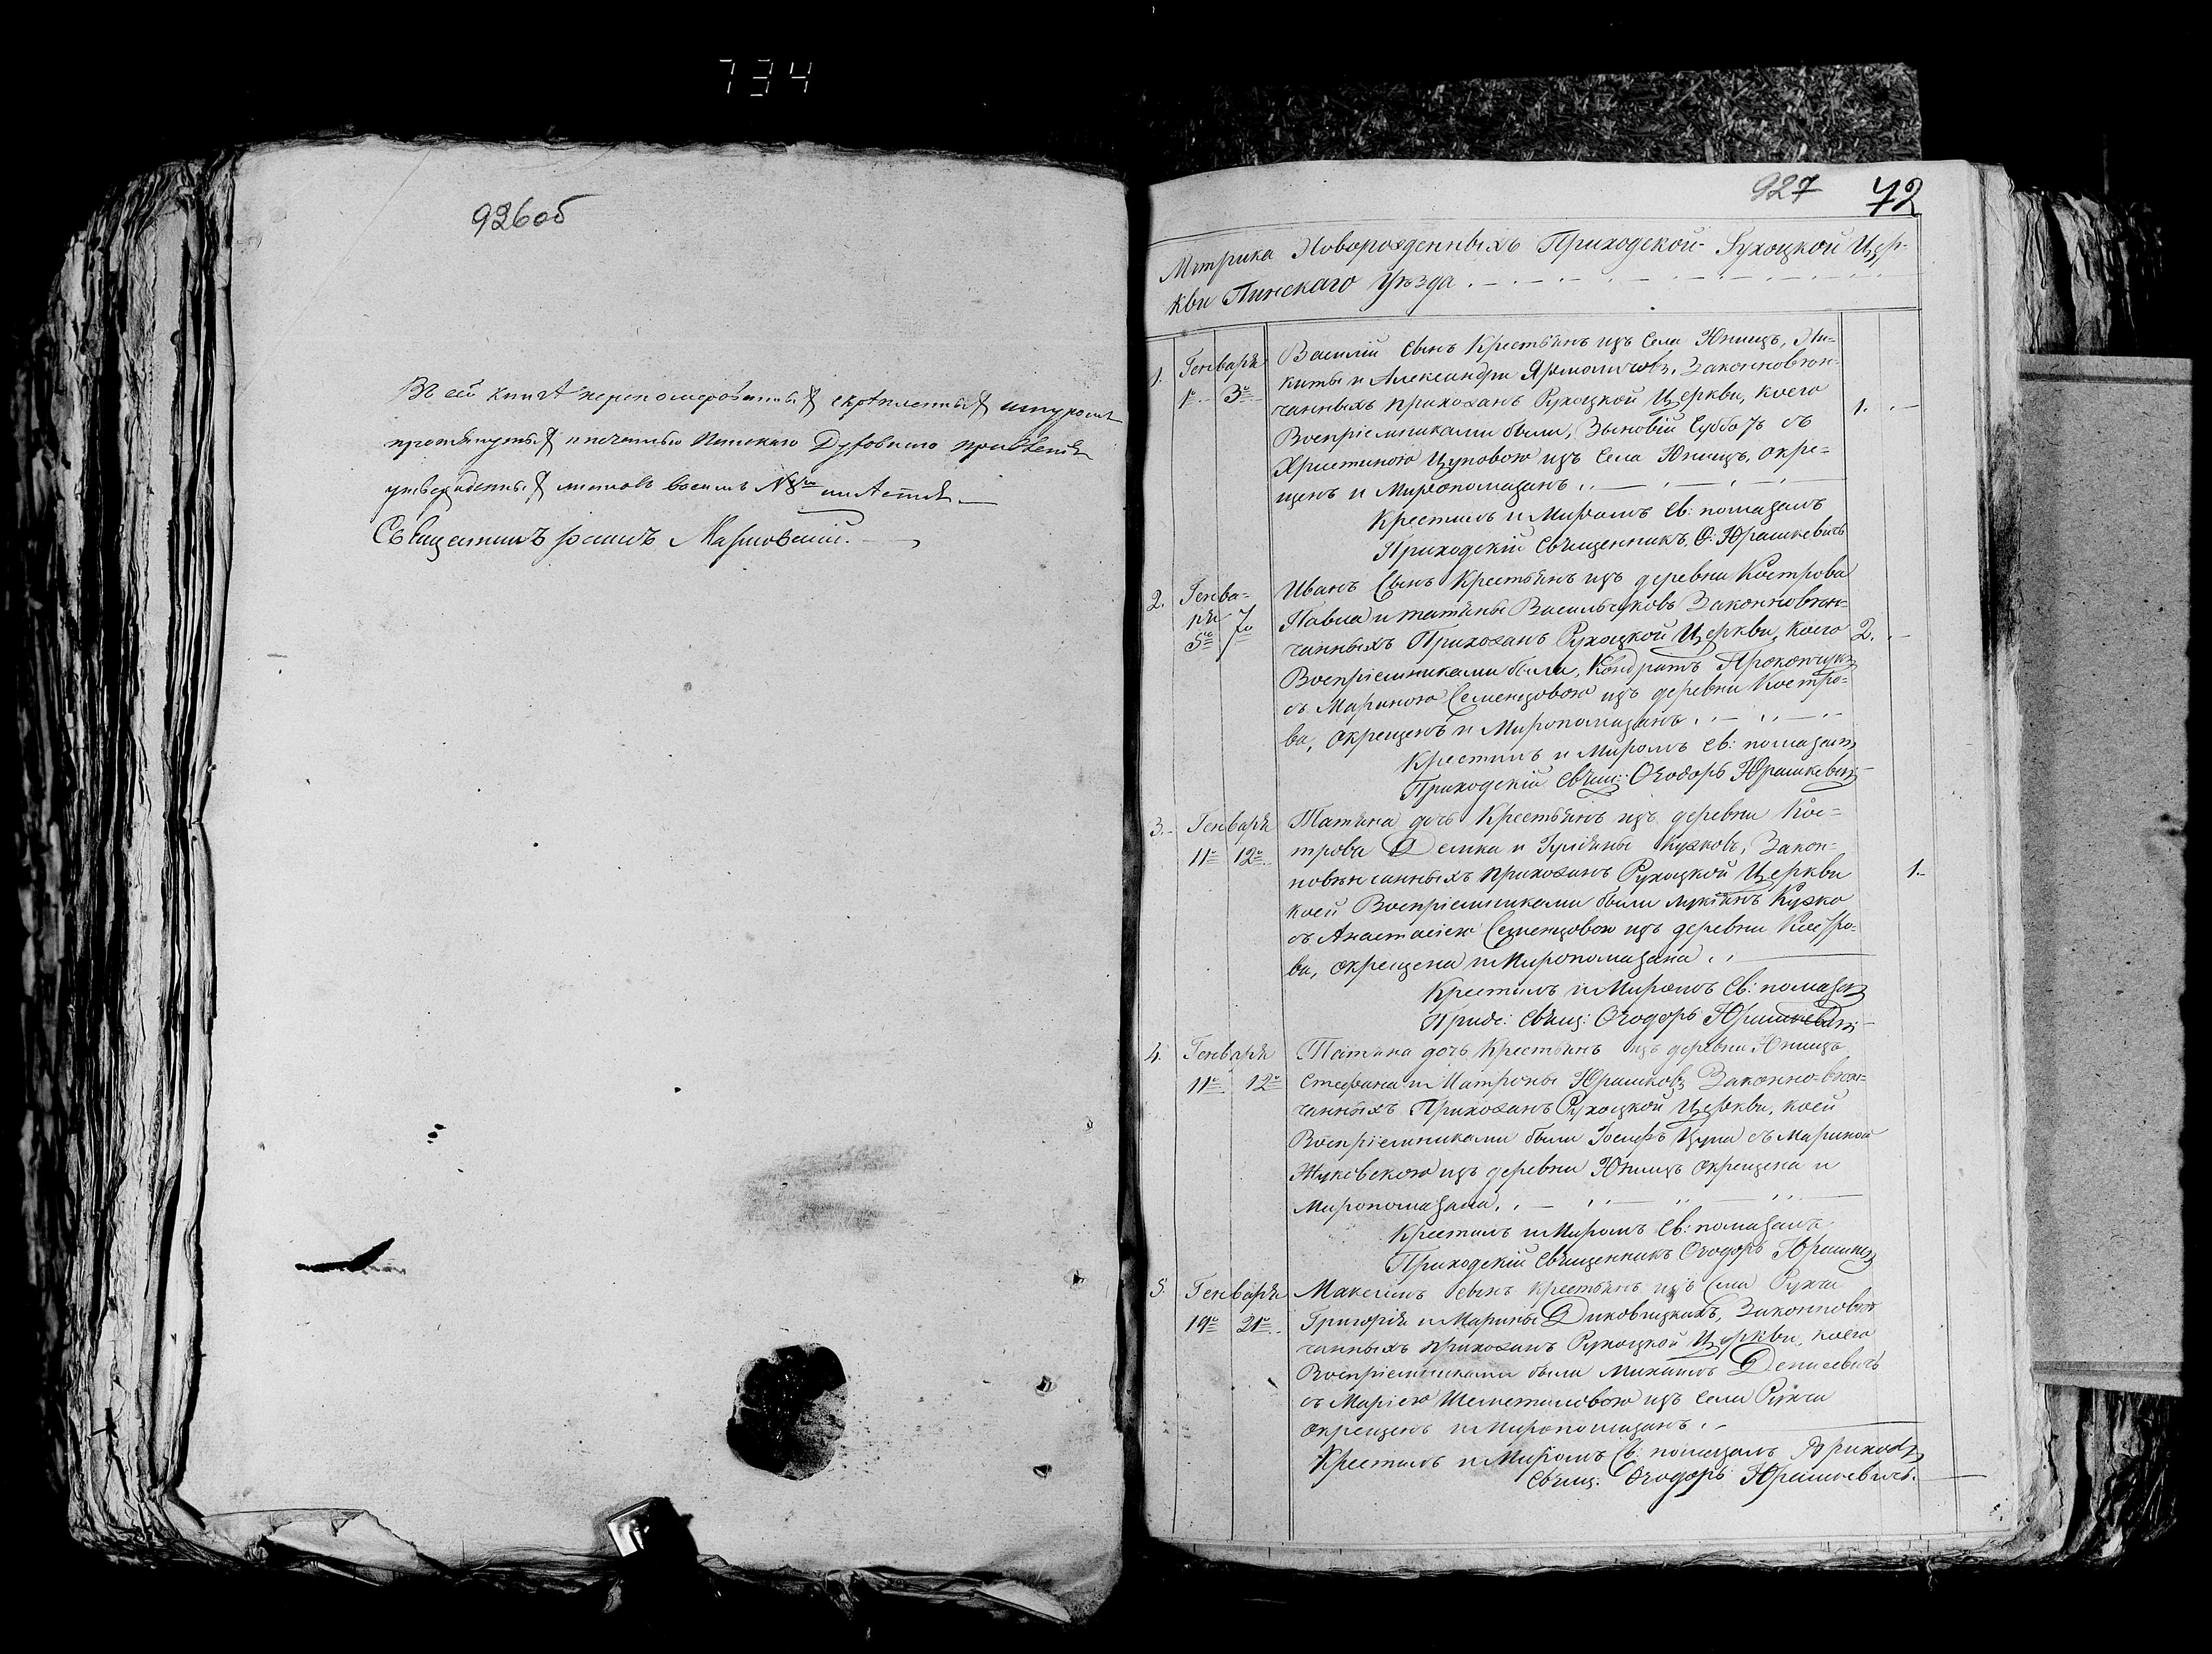 734
926об
Въ сей книгѣ перенумерованныхъ скрѣпленныхъ шнуромъ
протянутыхъ и печатью Пинскаго Духовнаго правленія
утвержденныхъ листовъ восемь №8 имѣется
Священникъ
927 72
Метрика Новорожденныхъ Приходской Рухоцкой Цер-
кви Пинскаго Уѣзда
1. Генваря 1го 3го Василій Сынъ Крестьянъ изъ Села Юнищъ, Ни-
киты и Александры Ярмоличовъ, Законновѣн-
чанныхъ прихожанъ Рухоцкой Церкви, коего 1.
Воспріемниками были, Зѣновій Суббота съ
Христиною Цуповою изъ Села Юнищъ, окре-
щенъ и Миропомазанъ
Крестилъ и Миромъ Св: помазалъ
Приходскій Священникъ, Ѳ: Юрашкевичъ
2. Генва- Иванъ Сынъ Крестьянъ изъ деревни Кострова
ря 5го 7го Павла и Татьяны Васильчуковъ Законновѣн-
чанныхъ Прихожанъ Рухоцкой Церкви, коего 2.
Воспріемниками были, Кондратъ Прокопчукъ
съ Мариною Семенцовою изъ деревни Костро-
ва, окрещенъ и Миропомазанъ
Крестилъ и Миромъ Св: помазалъ
Приходскій Свящ: Ѳеодоръ Юрашкевичъ
3. Генваря Татьяна дочь Крестьянъ изъ деревни Кос-
11го 12го трова Демка и Кужковъ, Закон-
новѣнчанныхъ прихожанъ Рухоцкой Церкви 1.
коей Воспріемниками были Лукіянъ Кужко
съ Анастасіею Семенцовою изъ деревни Костро-
ва, окрещена и Миропомазана
Крестилъ и Миромъ Св: помазалъ
Прихо: Свящ: Ѳеодоръ Юрашкевичъ
4. Генваря Татьяна дочь Крестьянъ изъ деревни Юнищъ
11го 12го Стефана и Матроны Юрашковъ Законно-вѣн-
чанныхъ Прихожанъ Рухоцкой Церкви, коей
Воспріемниками были Іосифъ Цупа съ Мариною
Жуковскою изъ деревни Юнищъ окрещена и
Миропомазана
Крестилъ и Миромъ Св: помазалъ
Приходскій Священникъ Ѳеодоръ
5. Генваря Максимъ сынъ крестьянъ изъ Села Рухчи
19го 21го Григорія и Марины Диковицкихъ, Законновѣн
чанныхъ прихожанъ Рухоцкой Церкви, коего
Воспріемниками были Михаилъ Денисевичъ
съ Маріею Шеметиловою изъ села Рухчи
окрещенъ и Миропомазанъ
Крестилъ и Миромъ Св: помазалъ Приход
Свящ: Ѳеодоръ Юрашкевичъ.